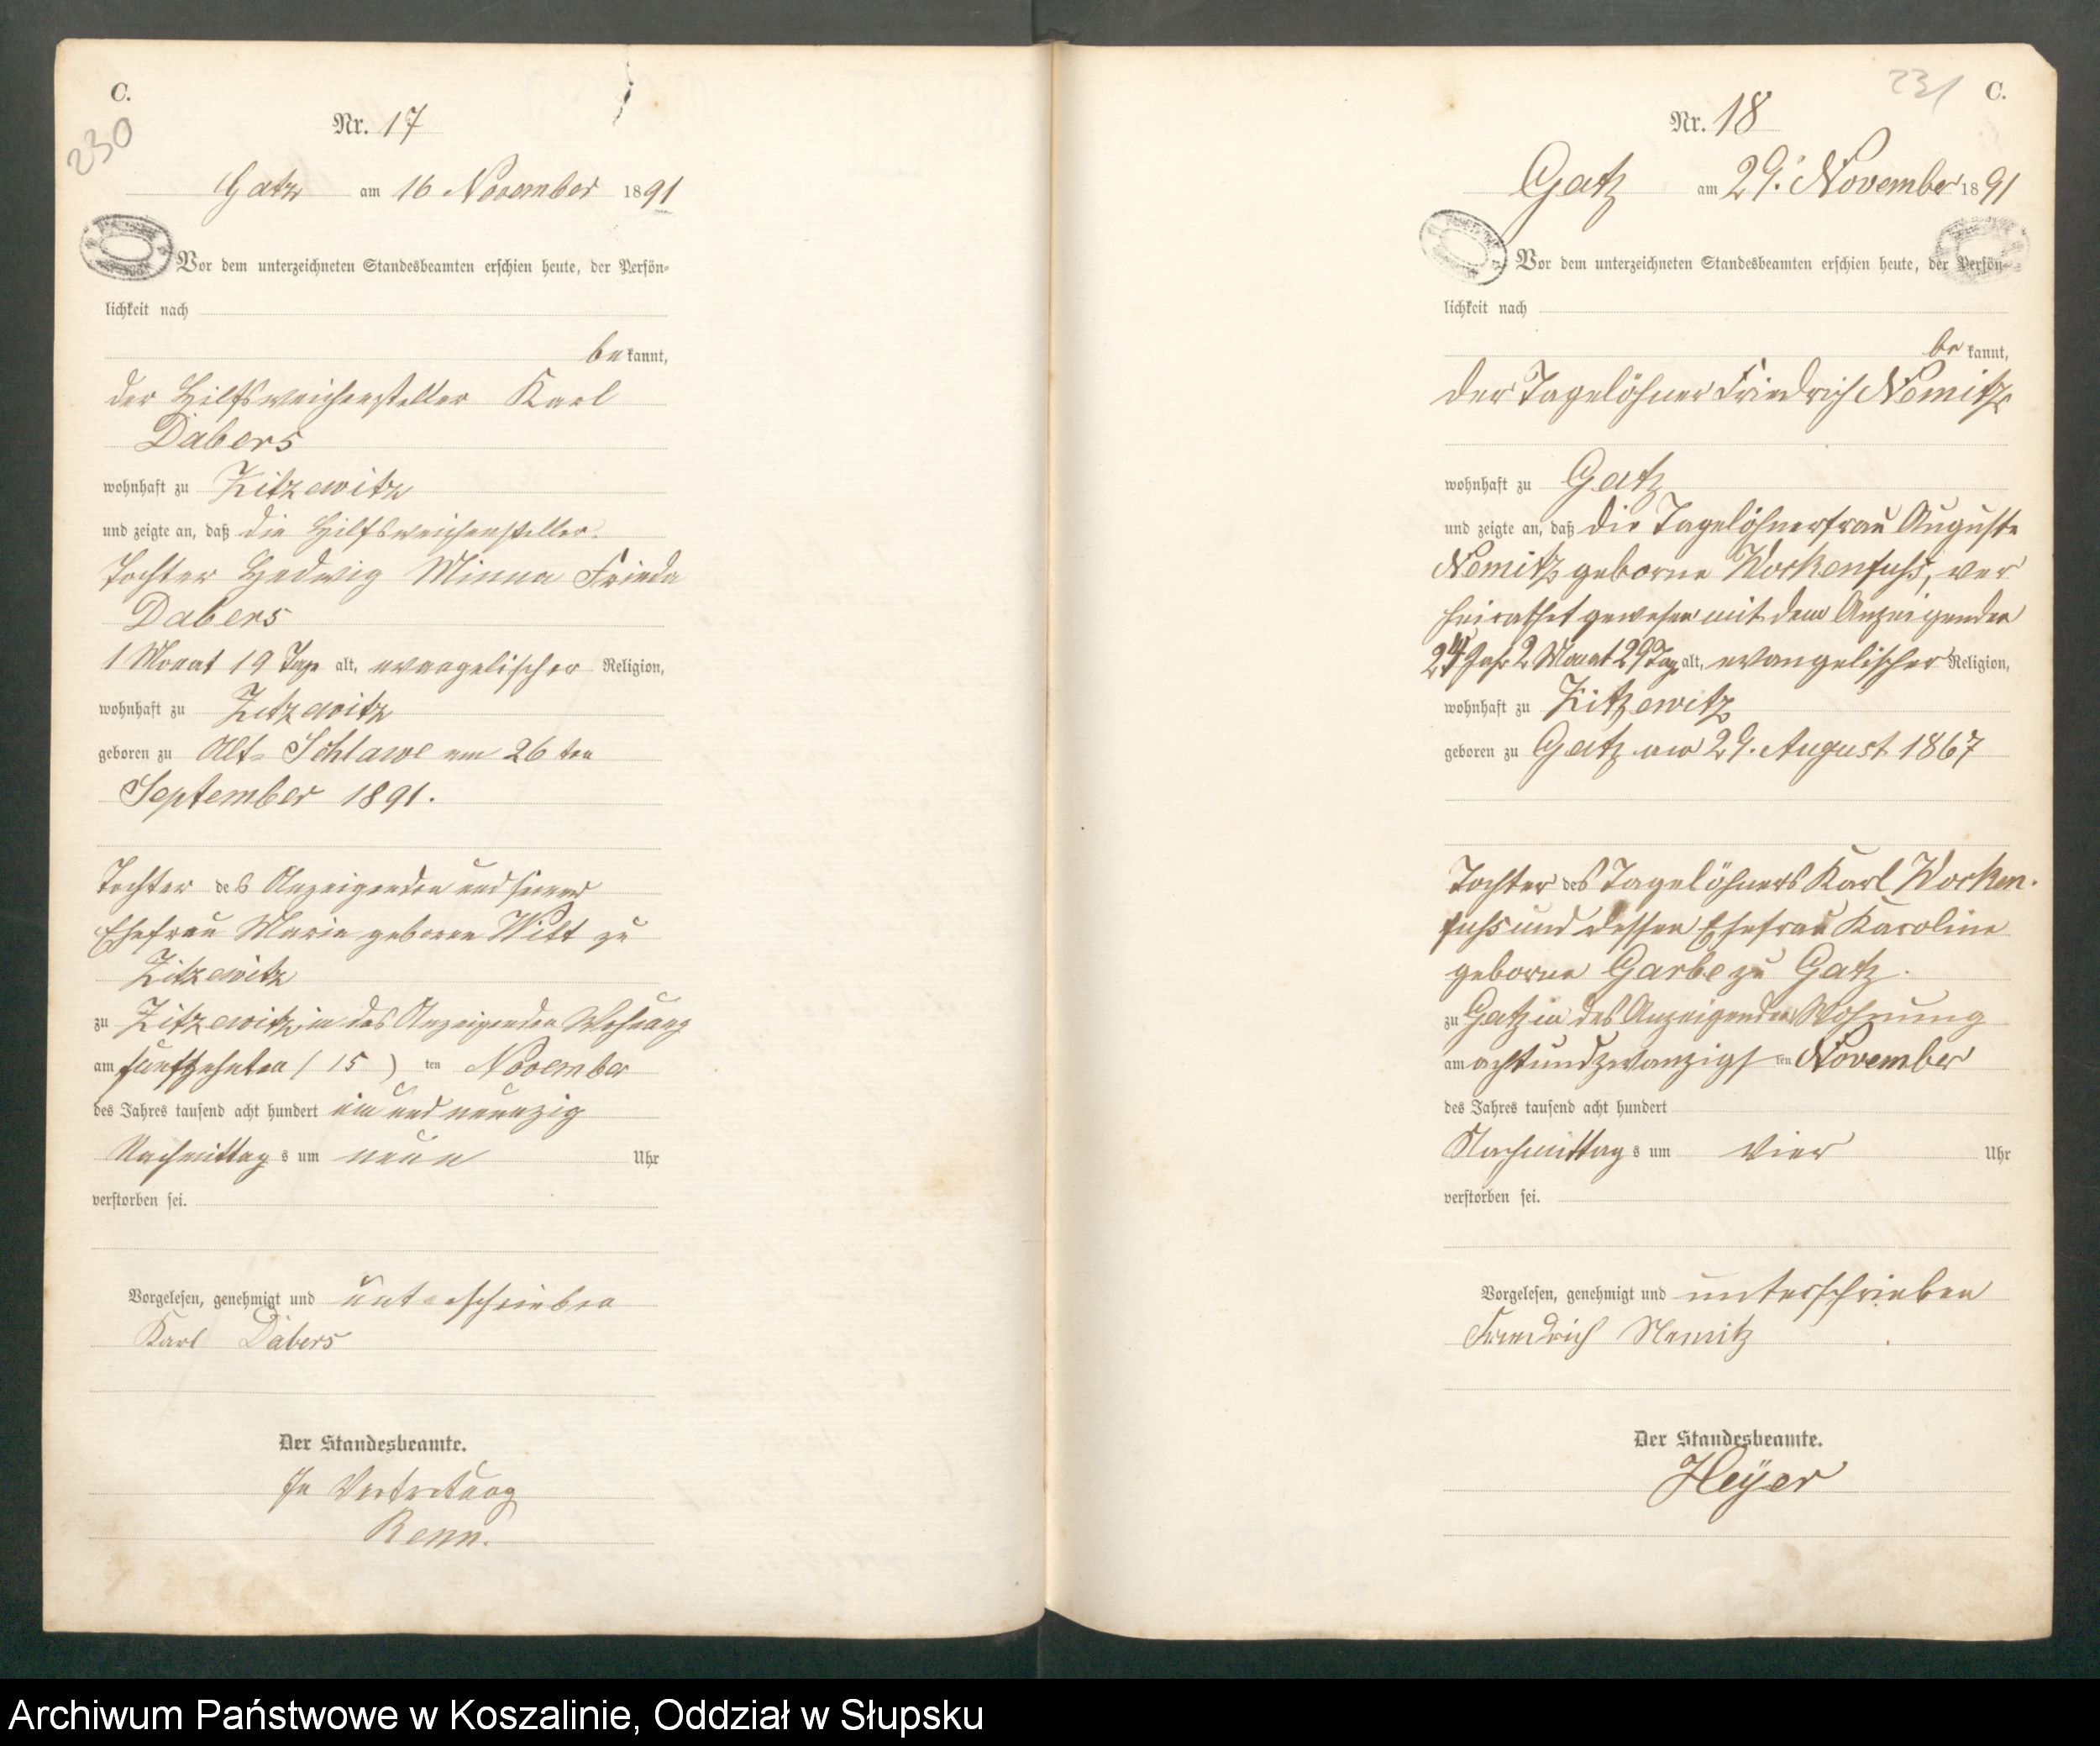 C.
230
Nr. 17
Gatz am 16 November 1891
Vor dem unterzeichneten Standesbeamten erschien heute, der Persön-
lichkeit nach
bekannt,
der Hilfsweichensteller Karl
Dabers
wohnhaft zu Zitzewitz
und zeigte an, daß die Hilfsweichensteller-
Tochter Hedwig Minna Frieda
Dabers
1 Monat 19 Tage alt, evangelischer Religion,
wohnhaft zu Zitzewitz
geboren zu Alt-Schlawe am 26 ten
September 1891.
Tochter des Anzeigenden und seiner
Ehefrau Marie geborene Witt zu
Zitzewitz
zu Zitzewitz in des Anzeigenden Wohnung
am fünfzehnten (15) ten November
des Jahres tausend acht hundert ein und neunzig
Nachmittags um neun Uhr
verstorben sei.
Vorgelesen, genehmigt und unterschrieben
Karl Dabers
Der Standesbeamte.
In Vertretung
Renn.
231 C.
Nr. 18
Gatz am 29. November 1891
Vor dem unterzeichneten Standesbeamten erschien heute, der Persön-
lichkeit nach
bekannt,
der Tagelöhner Friedrich Nemitz
wohnhaft zu Gatz
und zeigte an, daß die Tagelöhnerfrau Auguste
Nemitz geborne Workenfuß, ver
heirathet gewesen mit dem Anzeigenden
24 Jahr 2 Monat 29 Tag alt, evangelischer Religion,
wohnhaft zu Zitzewitz
geboren zu Gatz am 29. August 1867
Tochter des Tagelöhners Karl Worken-
fuß und dessen Ehefrau Karoline
geborne Garbe zu Gatz.
zu Gatz in des Anzeigenden Wohnung
am achtundzwanzigsten November
des Jahres tausend acht hundert
Nachmittags um vier Uhr
verstorben sei.
Vorgelesen, genehmigt und unterschrieben
Friedrich Nemitz
Der Standesbeamte.
Heyer
Archiwum Państwowe w Koszalinie, Oddział w Słupsku